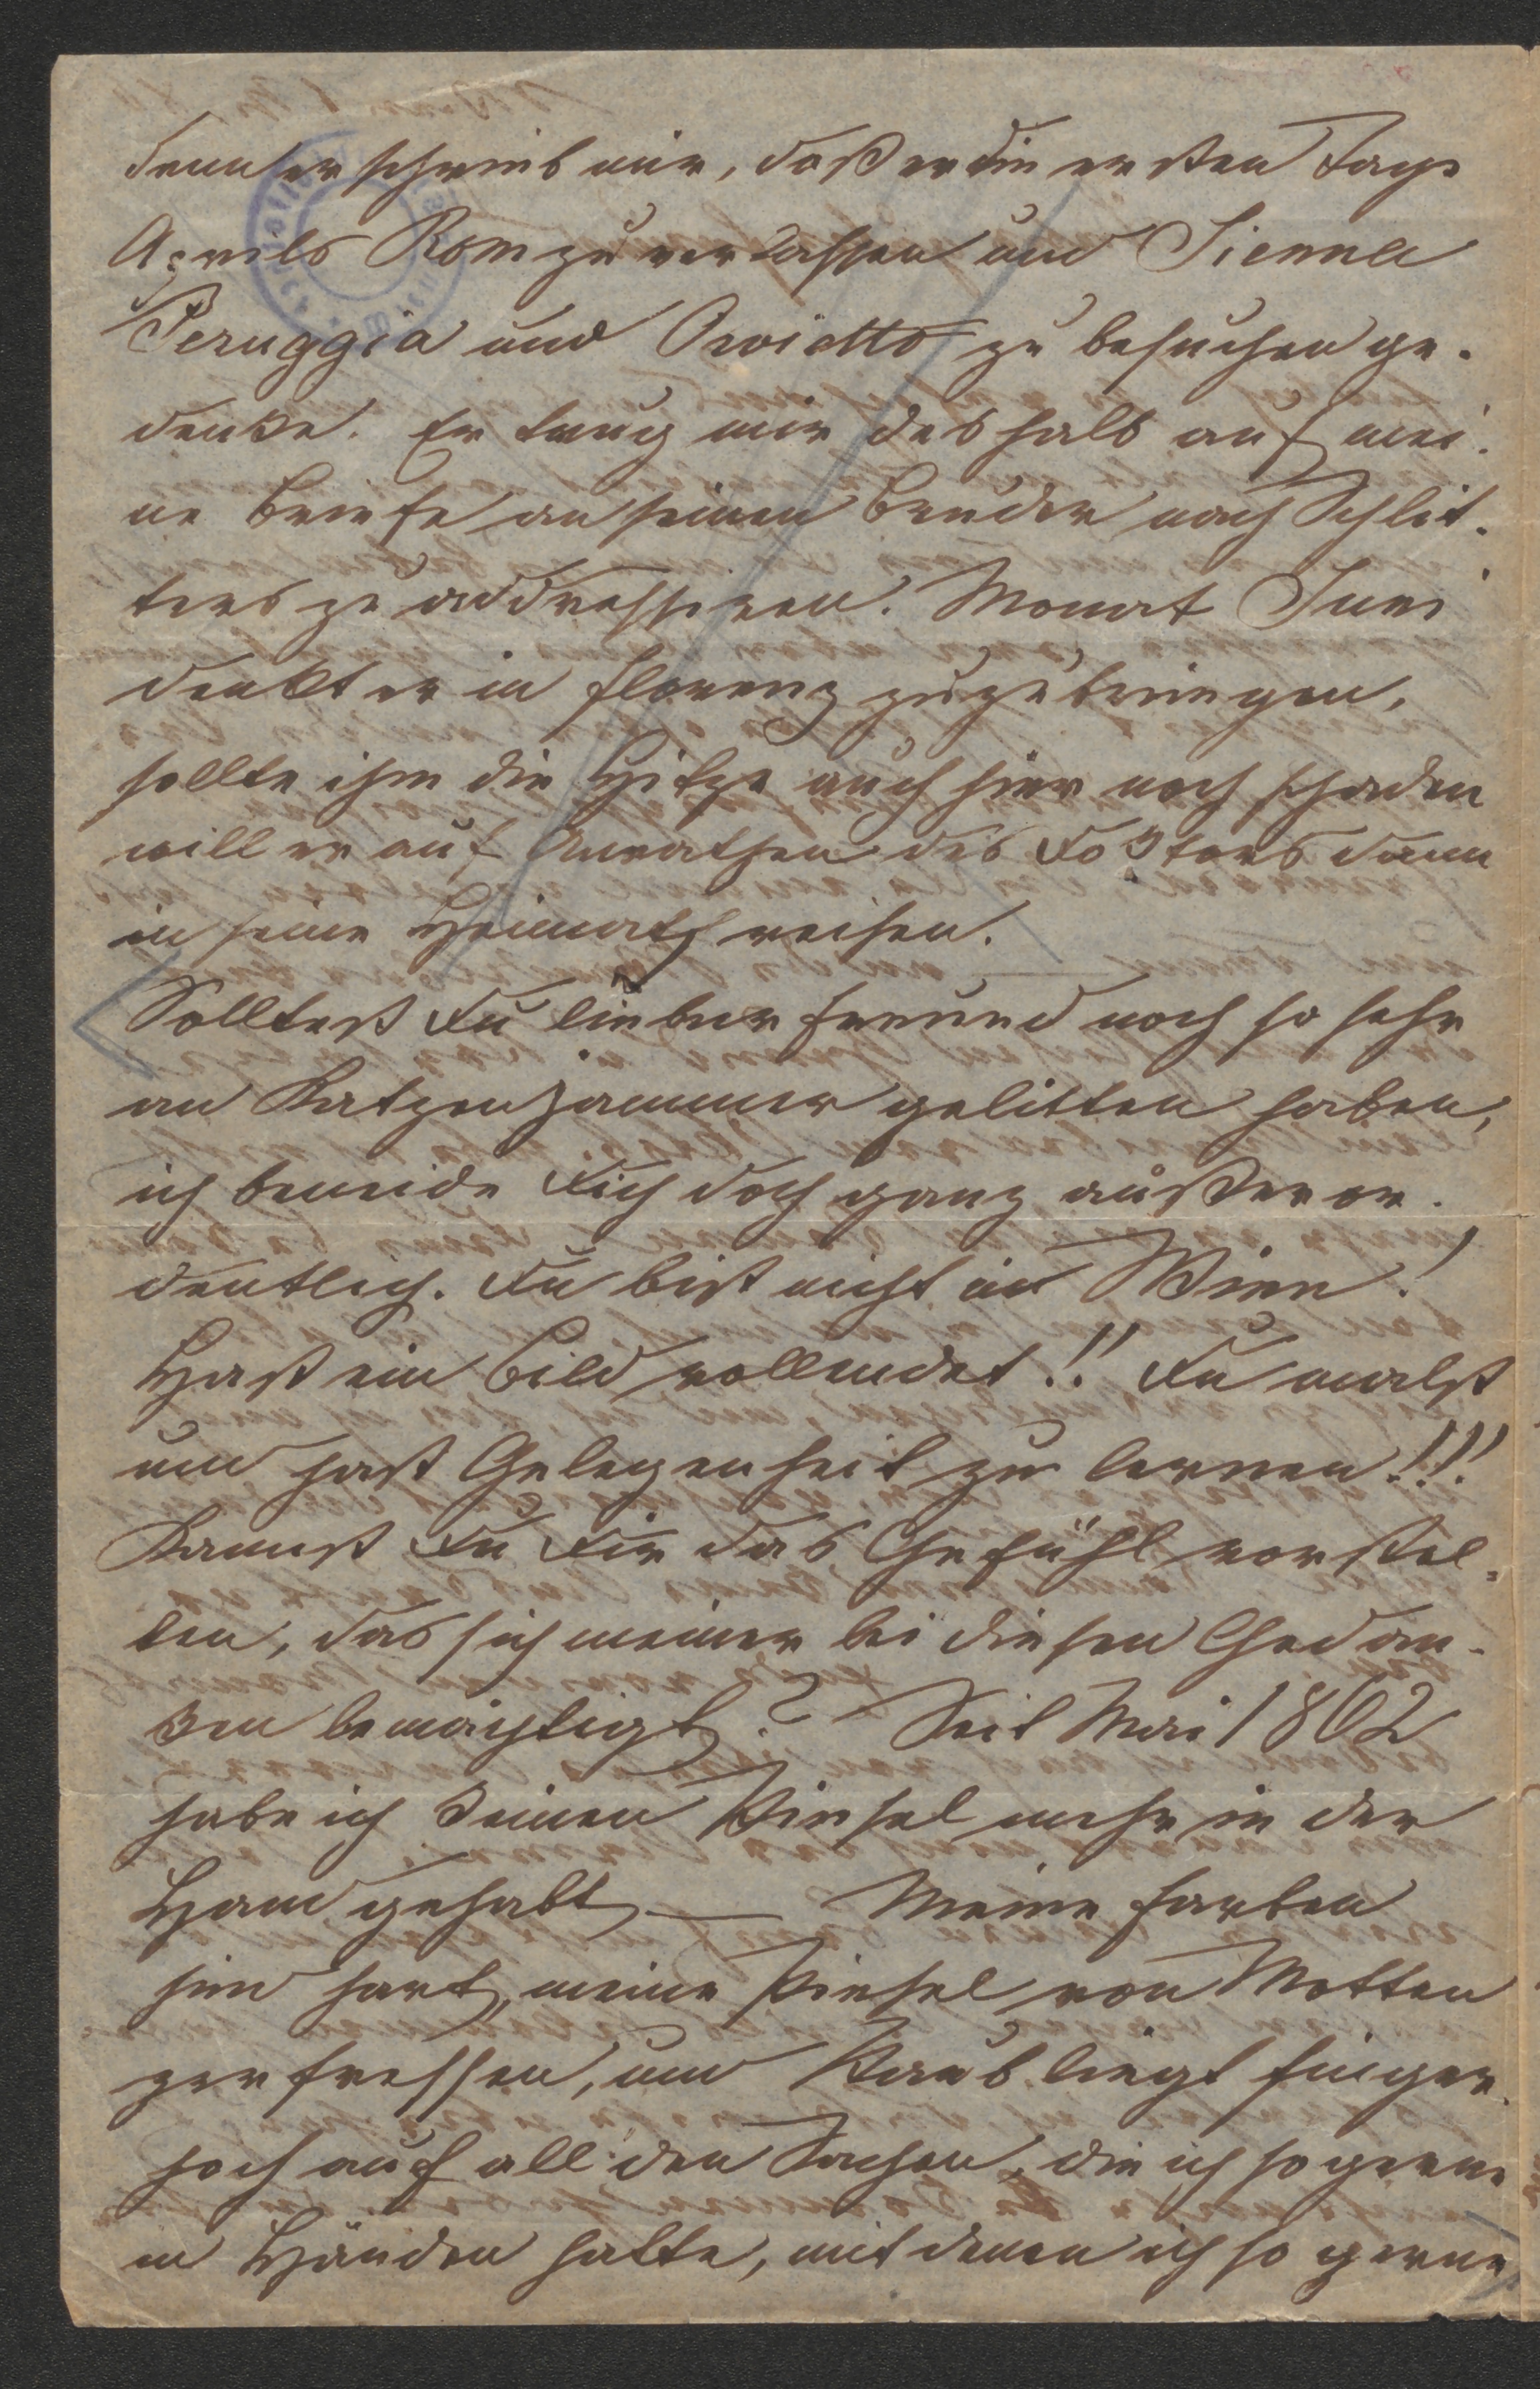 denn er schrieb mir, daß er die ersten Tage
Aprils Rom zu verlassen und Sienna
Peruggia und Orvietto zu besuchen ge-
denke. Er trug mir deshalb auf mei-
ne Briefe an seinen Bruder nach Schlit-
ters zu addressiren. Monat Juni
denkt er in Florenz zuzubringen,
sollte ihm die Hitze auch hier noch schaden
will er auf Anrathen des Doktors dann
in seine Heimath reisen.
Solltest Du lieber Freund noch so sehr
an Katzenjammer gelitten haben,
ich beneide Dich doch ganz außeror-
dentlich. Du bist nicht in Wien!
Hast ein Bild vollendet!! Du malst
und hast Gelegenheit zu lernen!!!
Kannst Du Dir das Gefühl vorstel-
len, das sich meiner bei diesen Gedan-
ken bemächtigt? Seit Mai 1862
habe ich keinen Pinsel mehr in der
Hand gehabt — Meine Farben
sind hart, meine Pinsel von Motten
zerfressen, und Staub liegt finger-
hoch auf all' den Sachen, die ich so gerne
in Händen hatte, mit denen ich so gerne